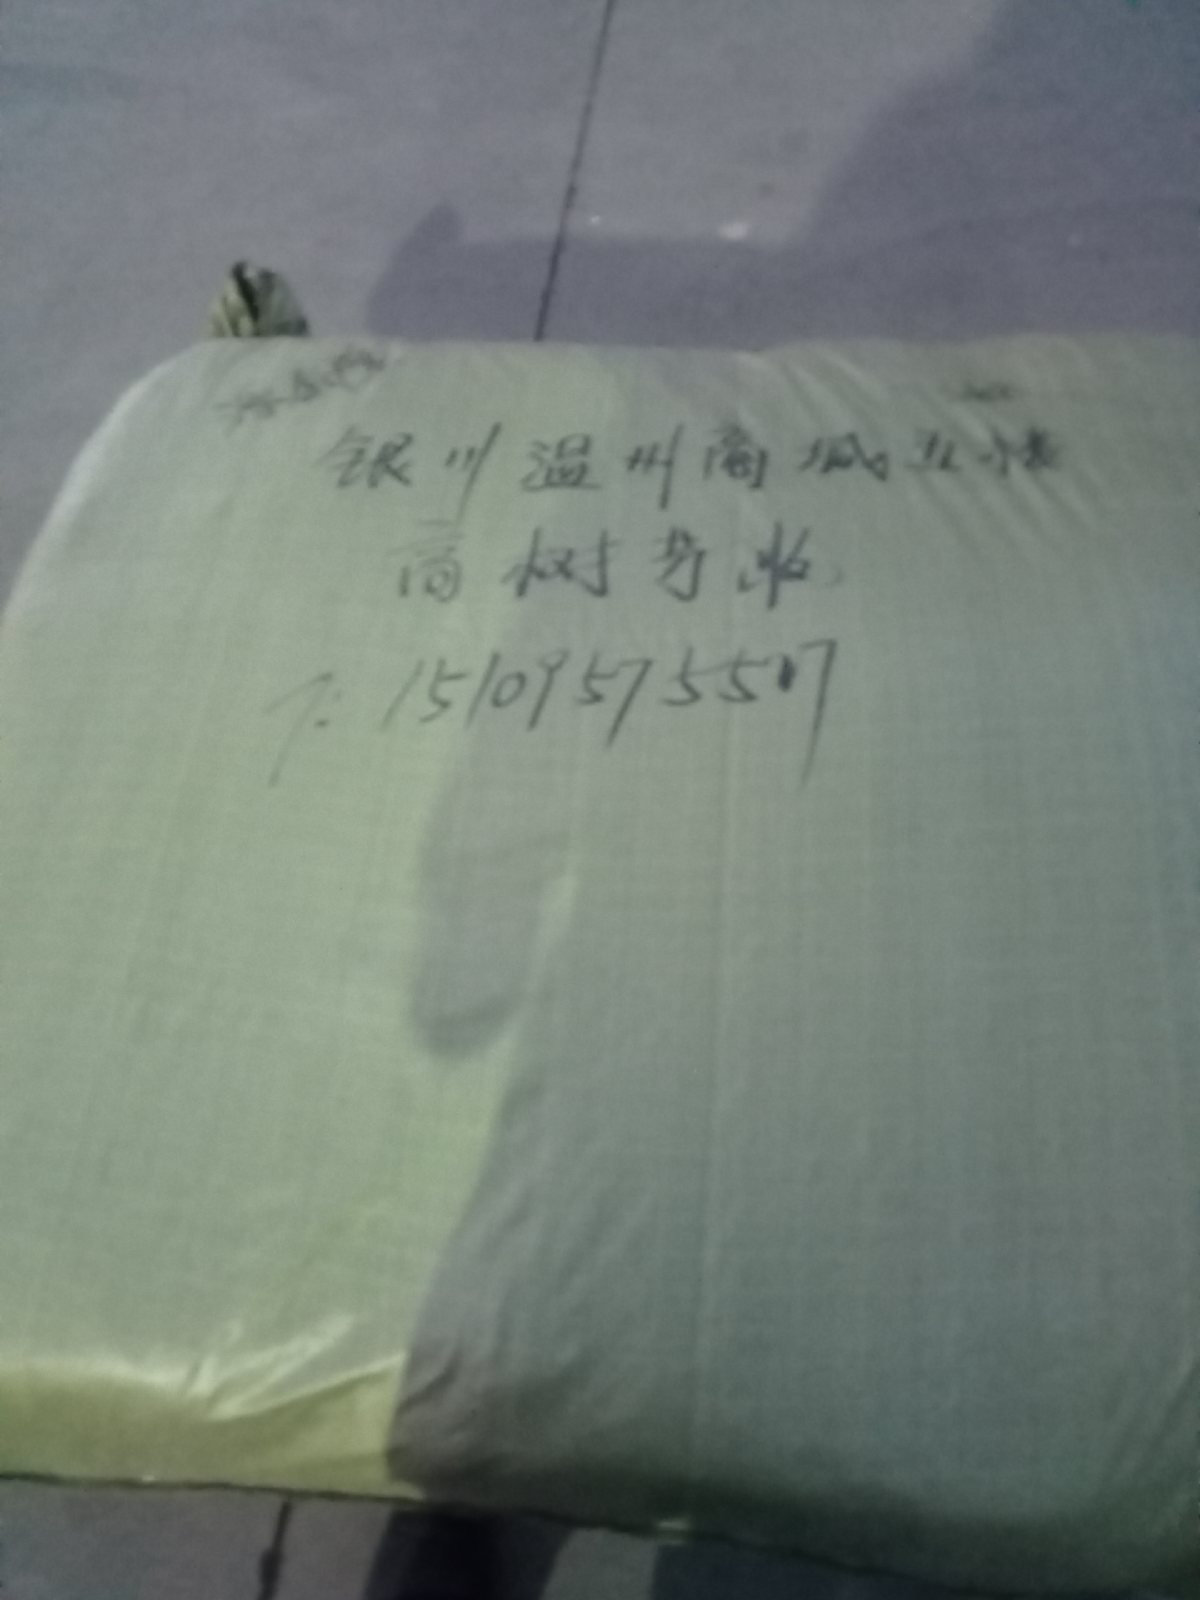 银川温州商城五楼
高树芳收
T:15109575517